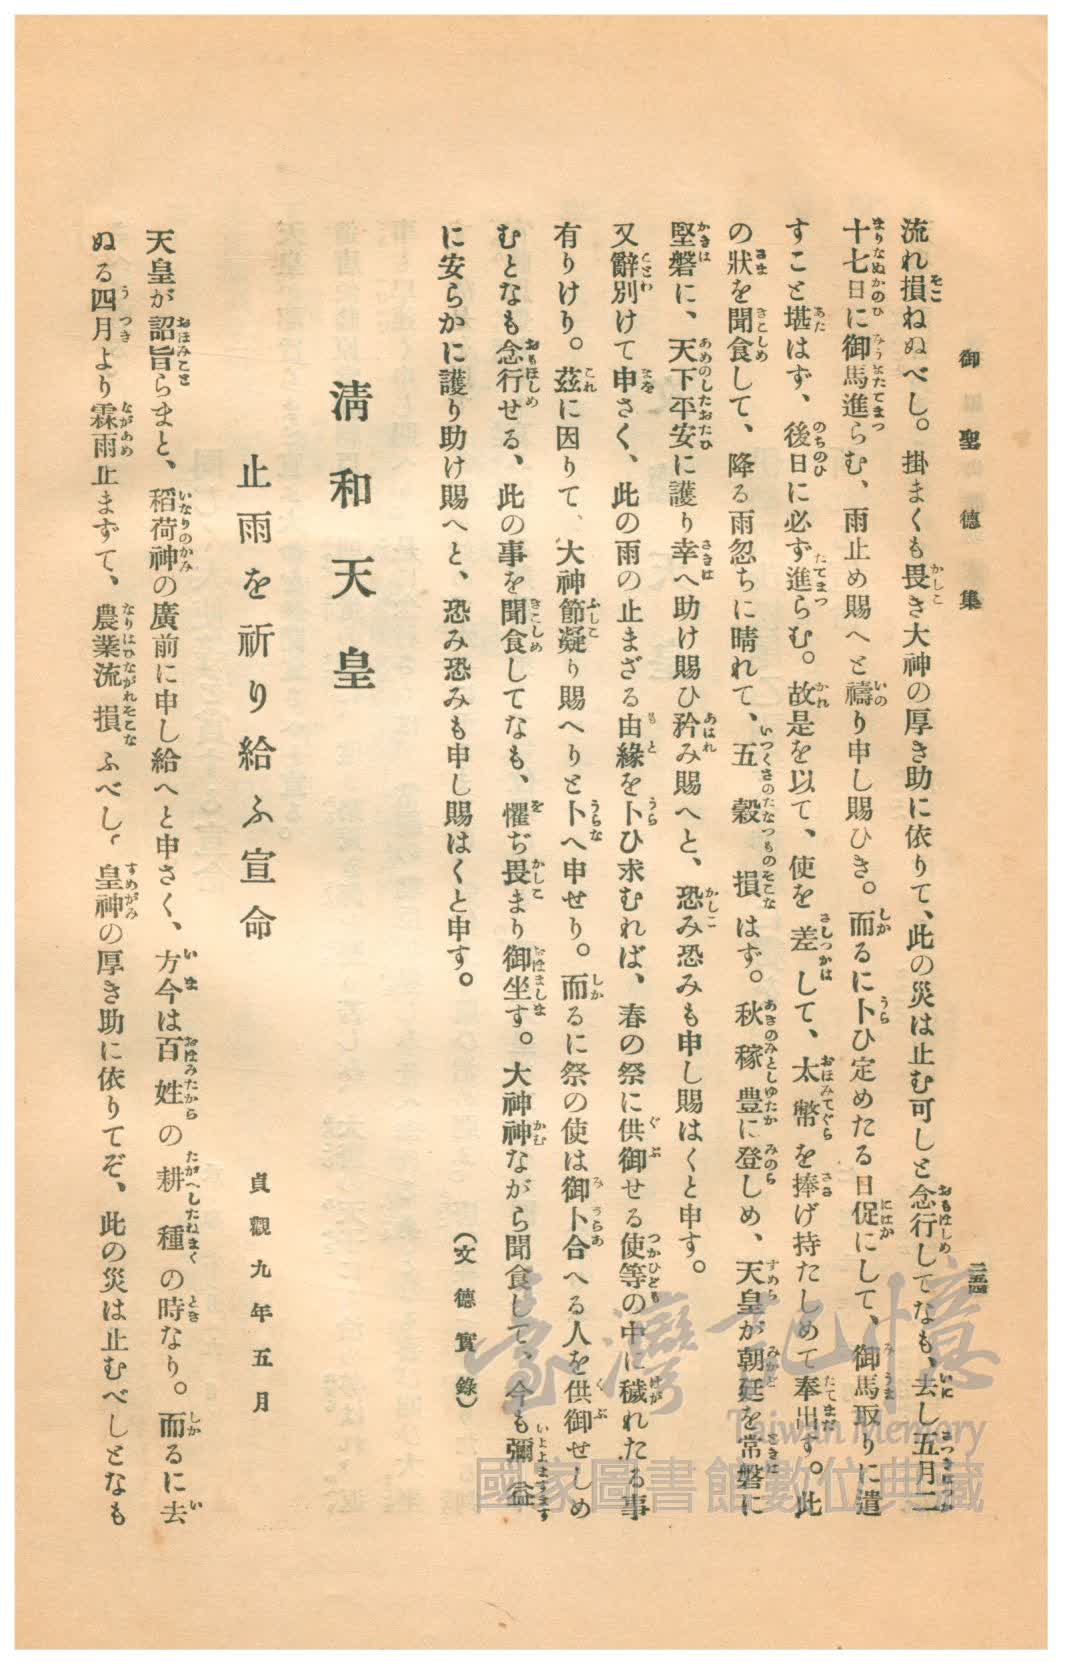 御聖德集
二五四
流れ損ねぬべし。掛まくも畏き大神の厚き助に依りて、此の災は止む可しと念行してなも、去し五月二
十七日に御馬進らむ、雨止め賜へと禱り申し賜ひき。而るに卜ひ定めたる日促にして、御馬取りに遣
すこと堪はず、後日に必ず進らむ。故是を以て、使を差して、太幣を捧げ持たしめて奉出す。此
の狀を聞食して、降る雨忽ちに晴れて、五穀損はず。秋稼豊に登しめ、天皇が朝廷を常磐に
堅磐に、天下平安に護り幸へ助け賜ひ矜み賜へと、恐み恐みも申し賜はくと申す。
又辭別けて申さく、此の雨の止まざる由緣を卜ひ求むれば、春の祭に供御せる使等の中に穢れたる事
有りけり。茲に因りて、大神節凝り賜へりと卜へ申せり。而るに祭の使は御卜合へる人を供御せしめ
むとなも念行せる、此の事を聞食してなも、懼ぢ畏まり御坐す。大神神ながら聞食して、今も彌益
に安らかに護り助け賜へと、恐み恐みも申し賜はくと申す。
（文德實錄）
淸和天皇
止雨を祈り給ふ宣命
貞觀九年五月
天皇が詔旨らまと、稻荷神の廣前に申し給へと申さく、方今は百姓の耕種の時なり。而るに去
ぬる四月より霖雨止まずて、農業流損ふべし、皇神の厚き助に依りてぞ、此の災は止むべしとなも
臺灣記憶
Taiwan Memory
國家圖書館數位典藏